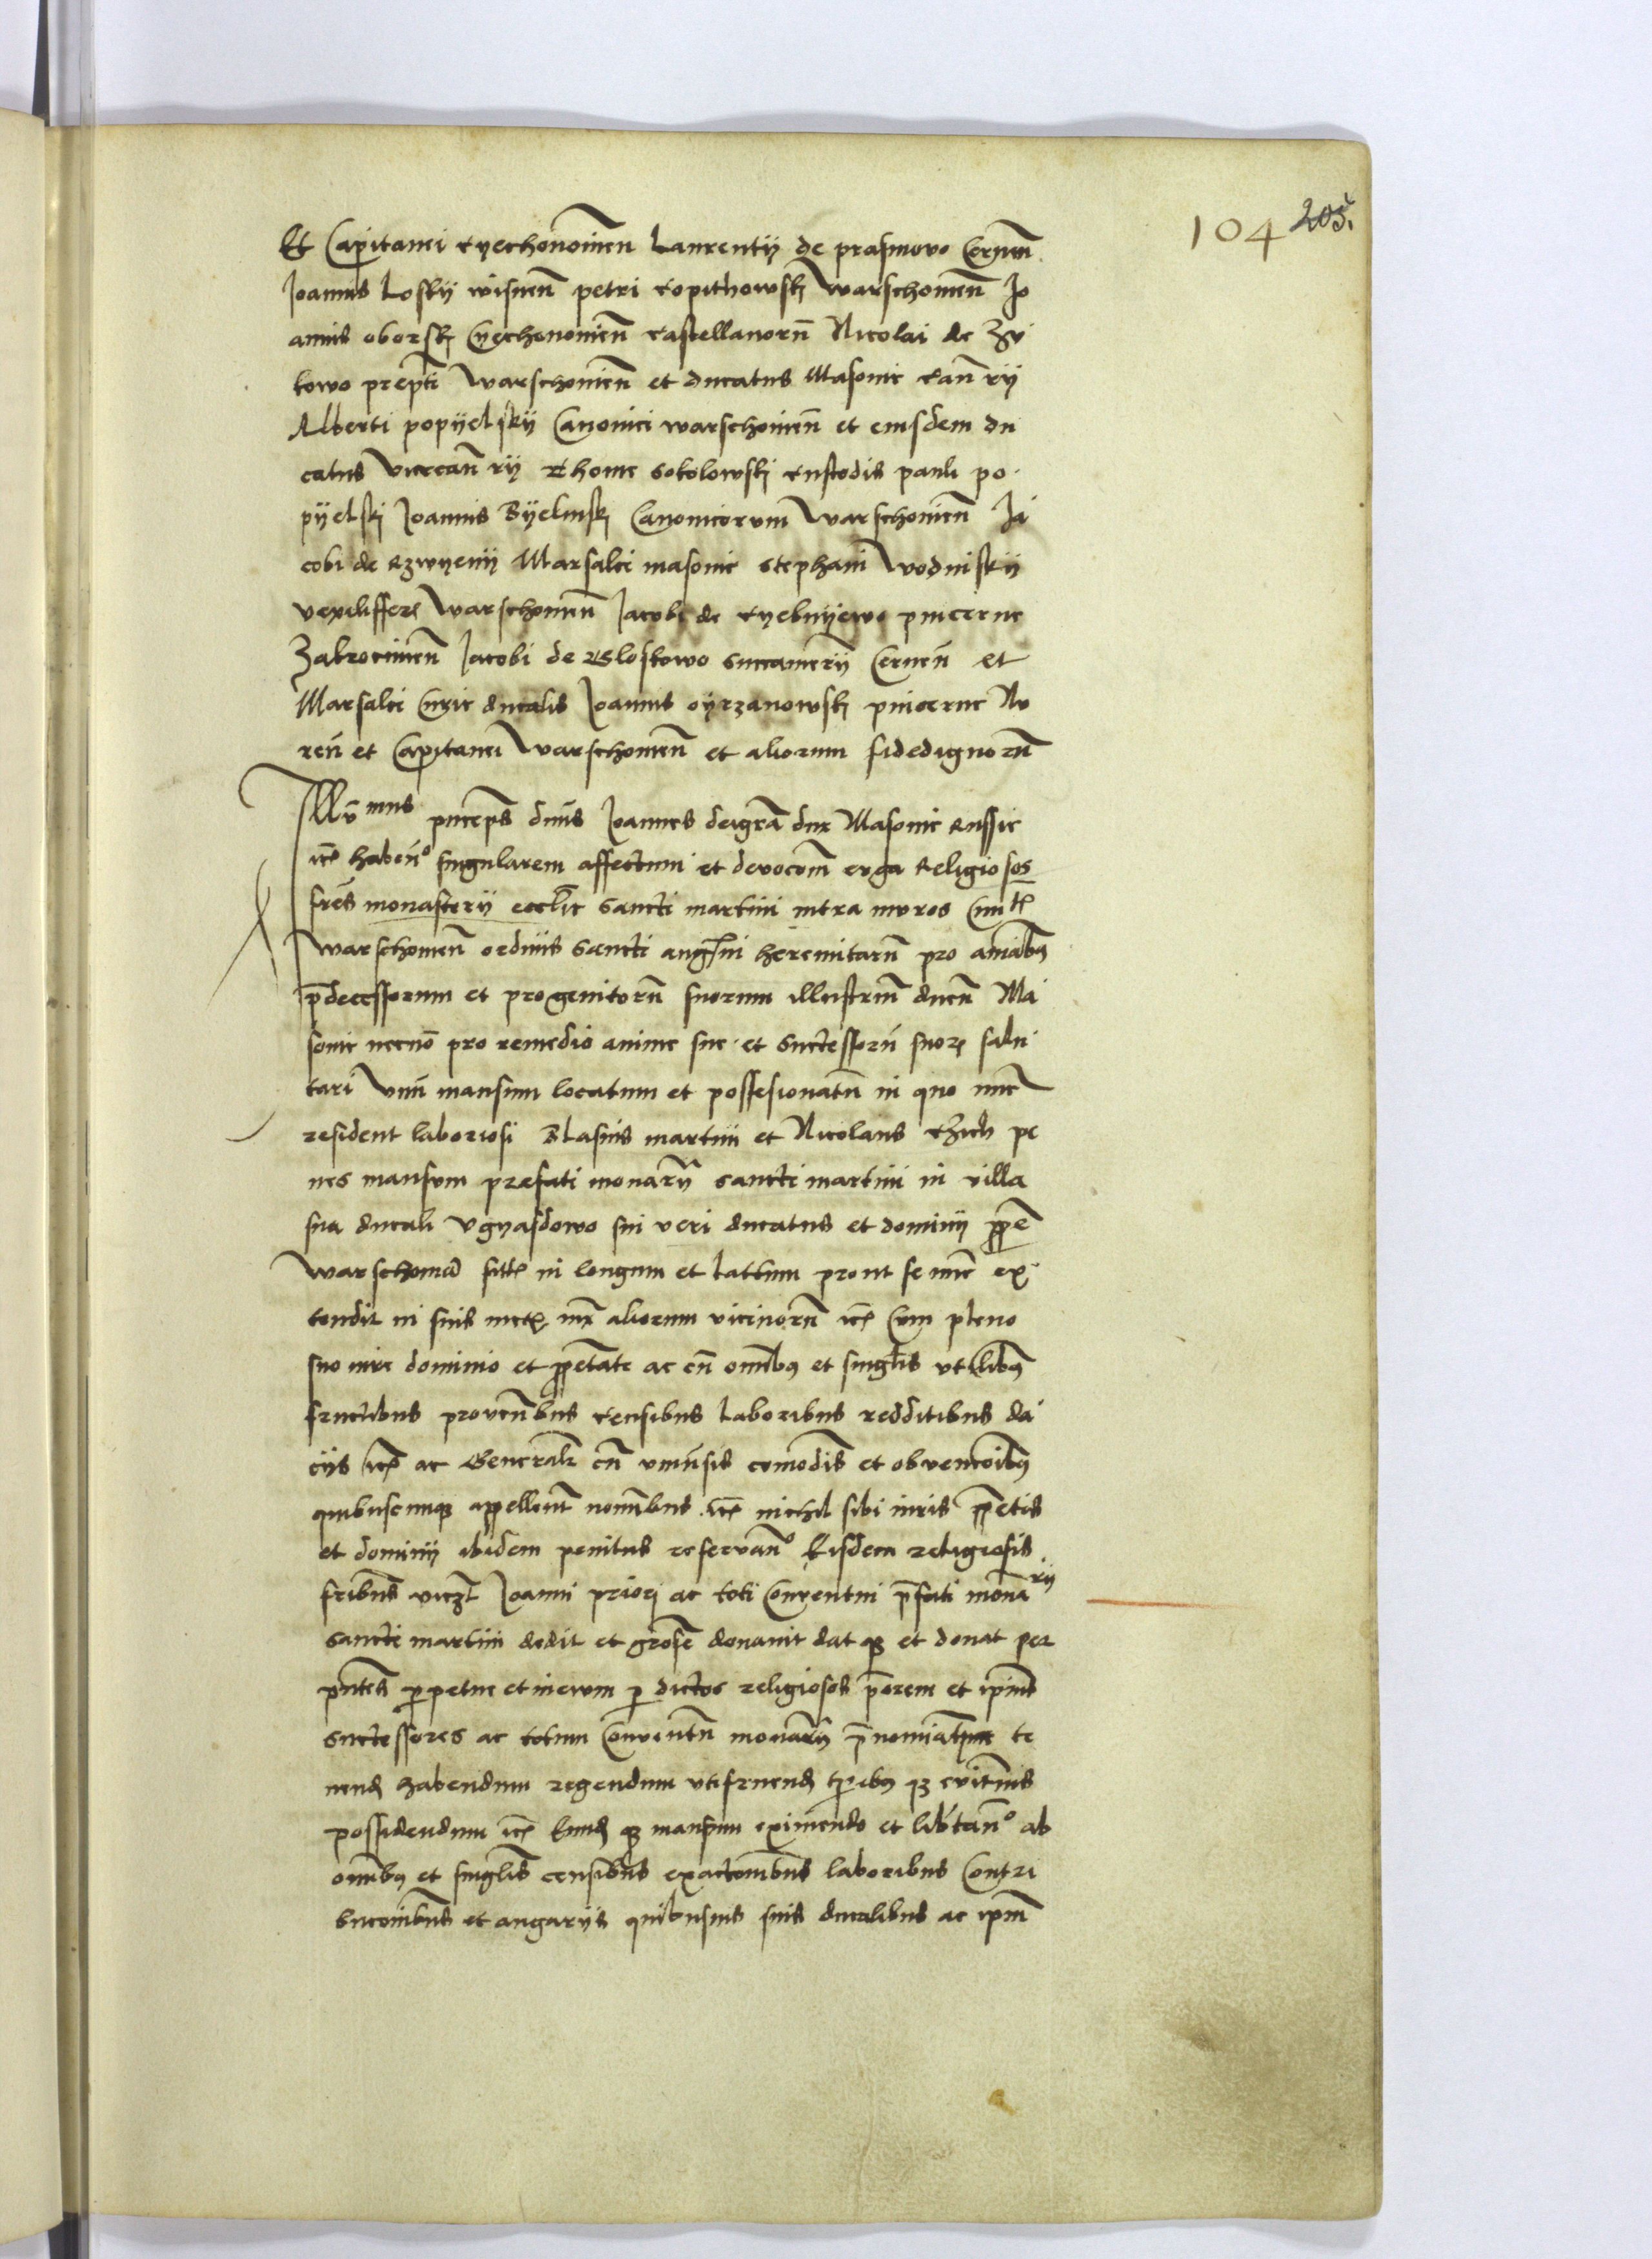 104 205.
Et Capitanei Cyechonowień Laurentij de prasmovo Cerneń
Joannis Losky wisneń petri Copithowskj Warschowień Jo
annis oborskj Cyechonowień castellanorū Nicolai de Zu
kowo preptī Warschowień et ducatus Masovie Canrij
Alberti popyelsky Canonici warschowień et eiusdem du
catus vicecanrij Thome Sokolowskj custodis pauli po
pyelskj Joannis Byelinskj Canonicorum Warschowień Ja
cobi de Rzwyenij Marsalci masovie Stephani Wodinskij
vexilliffere Warschowień Jacobi de Cyebnyewo pincerne
Zakrocimień Jacobi de Gloskowo Succamerij Cerneń et
Marsalci Curie ducalis Joannis oyrzanowskj pincerne Nu
reń et Capitanei Warschowień et aliorum fidedignorū
Illūmus princeps dnūs Joannes deigrā dux Masovie Russie
etc habeńo singularem affectum et devocōm erga Religiosos
frēs monasterij eccliē Sancti martini intra muros Civitz
Warschowień ordinis Sancti augstini heremitarū pro aīabus
pdecessorum et progenitorū suorum illustriū ducū Ma
sovie necnō pro remedio anime sue et Successorū suorz salu
tari Vnū mansum locatum et possesionatū in quo nūc
resident laboriosi Blasius martini et Nicolaus pe
nes mansum prefati monarij Sancti martini in villa
sua ducali vgyasdowo sui veri ducatus et dominij ppe
Warschoviā sitz in longum et lattum prout se nūc ex
tendit in suis metz iux aliorum vicinorū etc Cum pleno
suo iure dominio et ppetate ac cū omībus et singlis vtilibus
fructibus provenībus censibus laboribus redditibus da
ciis etc ac Generalr cū vniūsis comodis et obvencoībus
quibuscumqz appellentr nomībus etc nichil sibi iuris ppetis
et dominij ibidem penitus reservańo Eisdem religiosis
fribus viczt Joanni priori ac toti Conventui pfati monarij
Sancti martini dedit et grose donavit dat qz et donat per
pntes ppetue et inevum p dictos religiosos porem et ipius
Successores ac totum Conventū monarij pnomīatum te
nend habendum regendum vtifruend tpribus qz evitnis
possidendum etc Eund qz mansum eximendo et libertańo ab
omībus et singlis censibus exactonibus laboribus Contri
bucoibus et angariis quibusuis suis ducalibus ac ipm